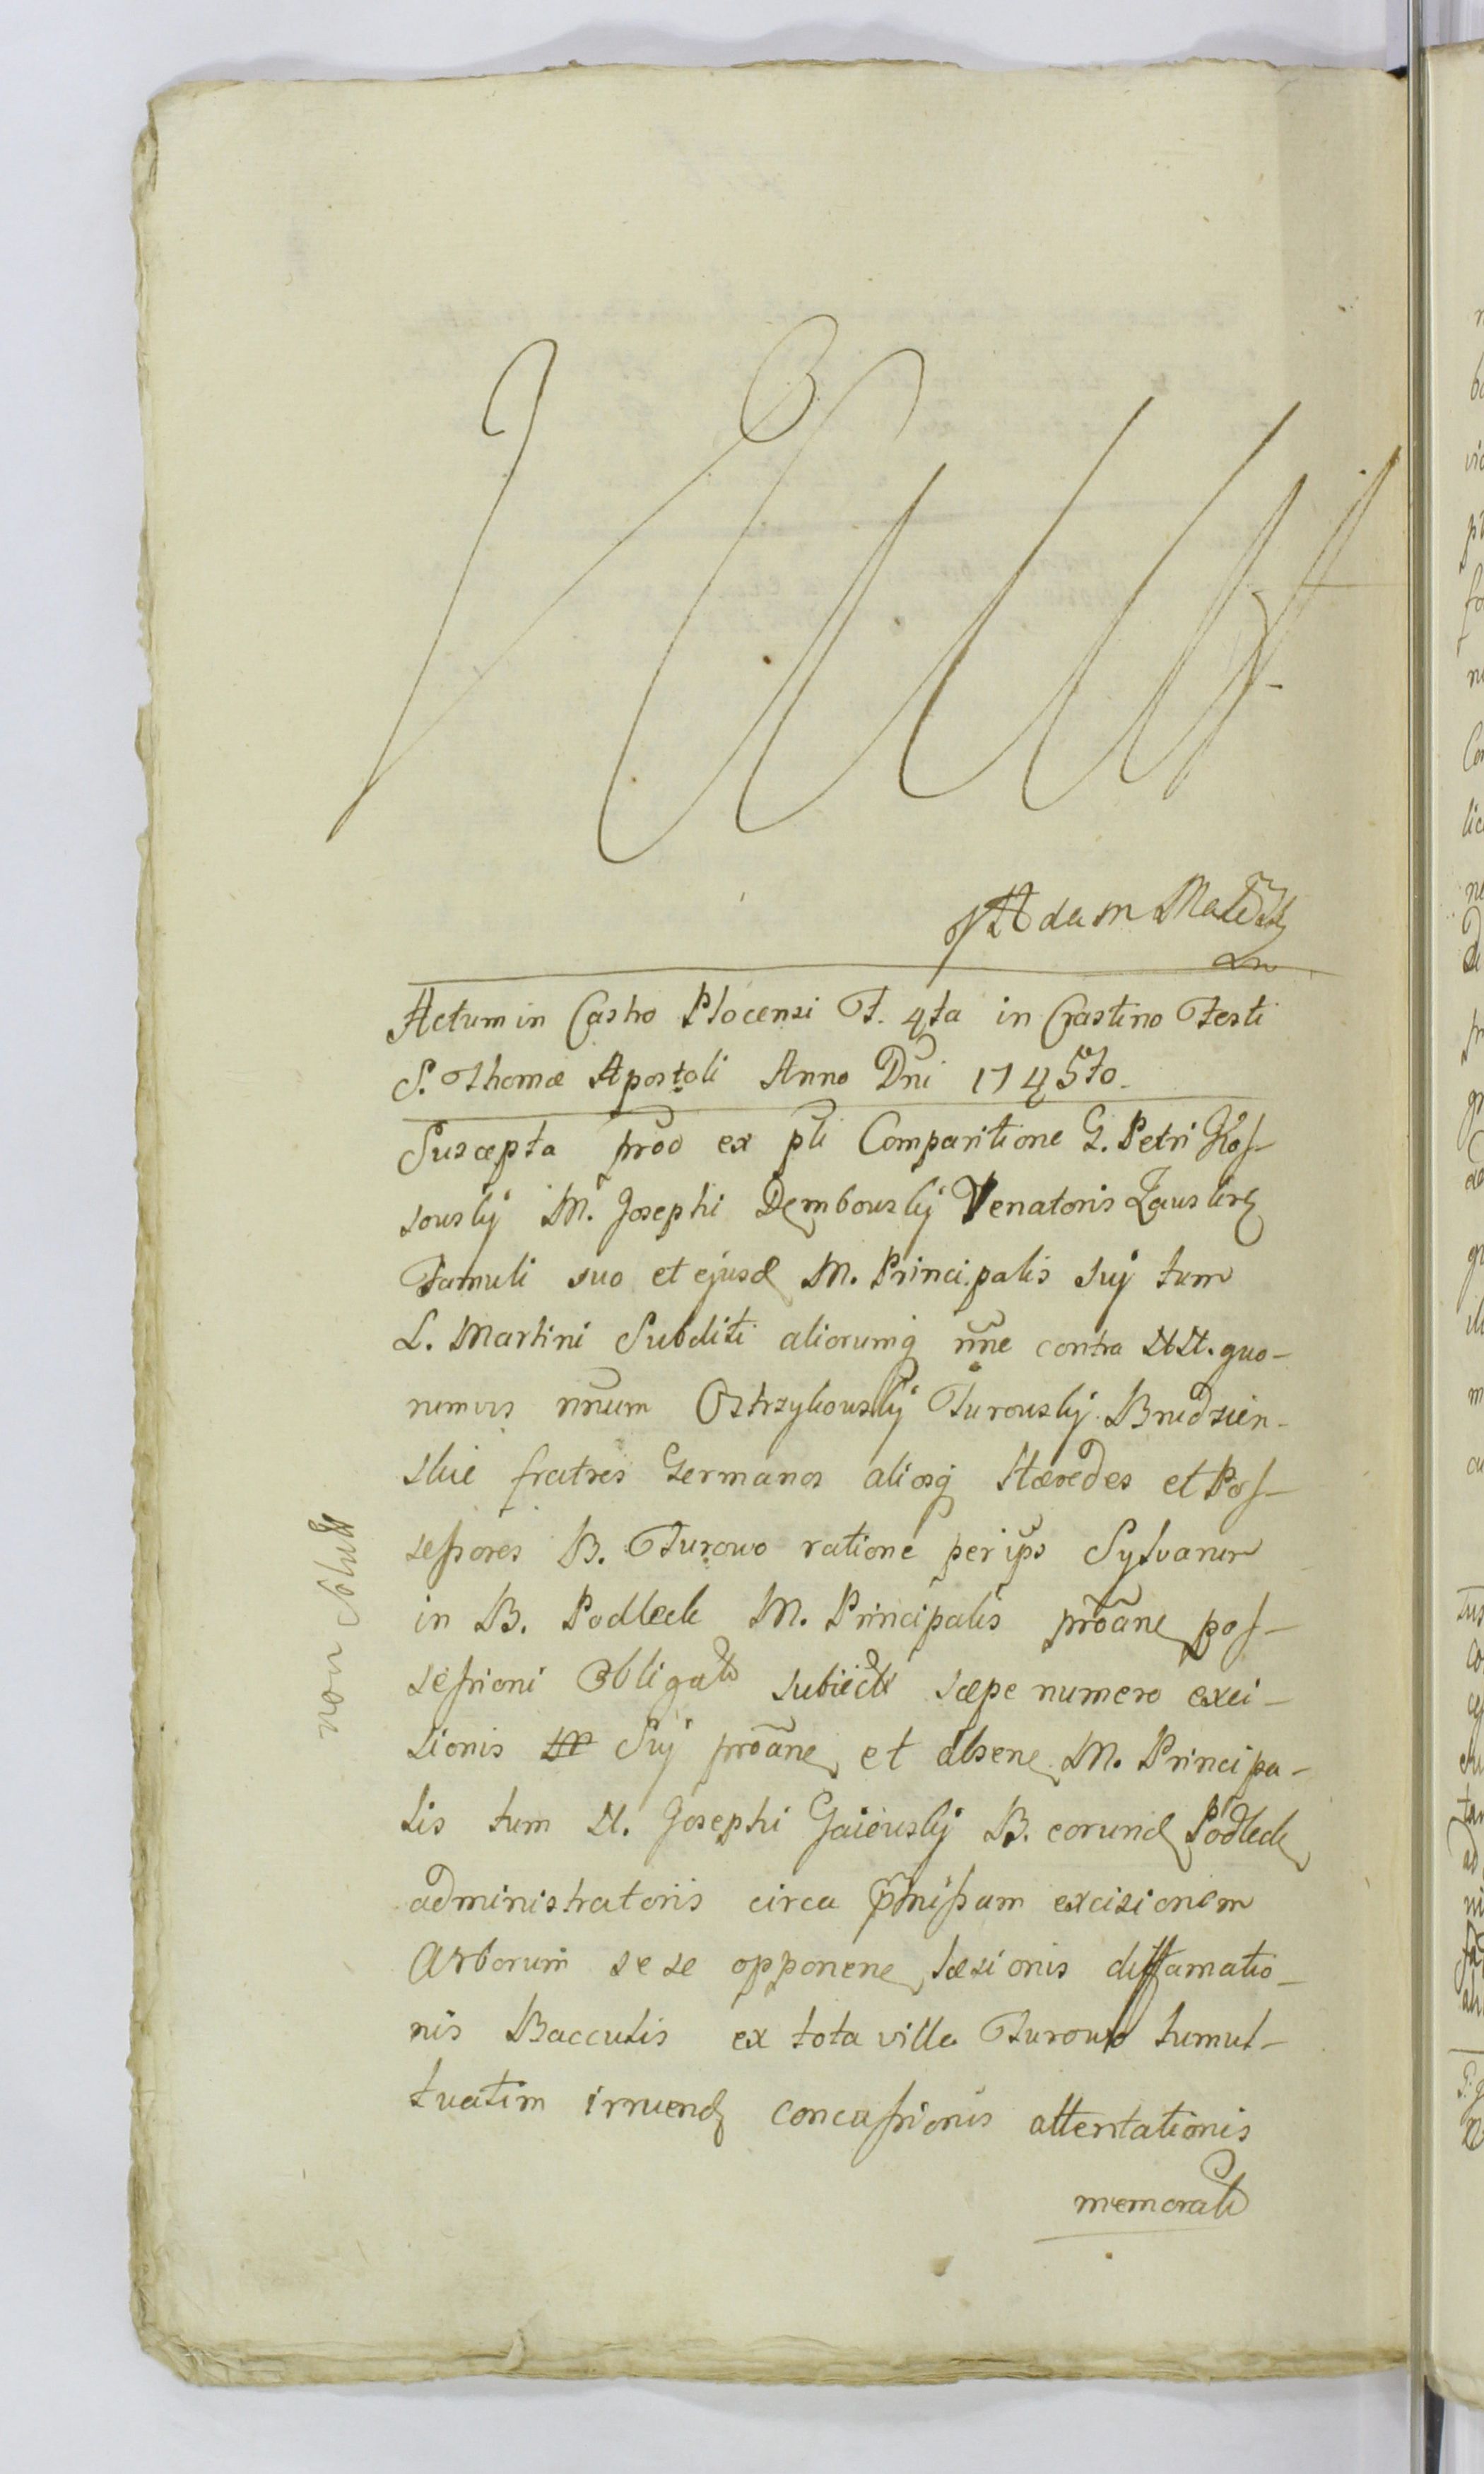 Vidit
Adam
Actum in Castro Plocensi F. 4ta in Crastino Festi
S. Thomæ Apostoli Anno Dni 1745to.
Suscepta prõ ex pti Comparitione G. Petri Kos-
sowskÿ M. Josephi Dembowskÿ Venatoris Zauskrz
Famuli suo et ejusd M. Principalis sui tum
L. Martini Subditi aliorumq nne contra NN. quo-
rumvis nnum Ostrzykowskÿ Turowskÿ Brudzien-
skie fratres Germanos aliosq Hæredes et Pos-
sessores B. Turowo ratione per ips Sylvarum
in B. Podleck M. Principalis proane pos-
sessioni Obligato subiectæ sæpe numero exci-
sionis Sui proane et absene M. Principa-
lis tum N. Josephi Gaiewskÿ B. eorund Podleck
administratoris circa pmissam excisionem
Arborum sese opponene læsionis diffamatio-
nis Bacculis ex tota villa Turowo tumul-
tuatim irruend concussionis attentationis
memorati
non